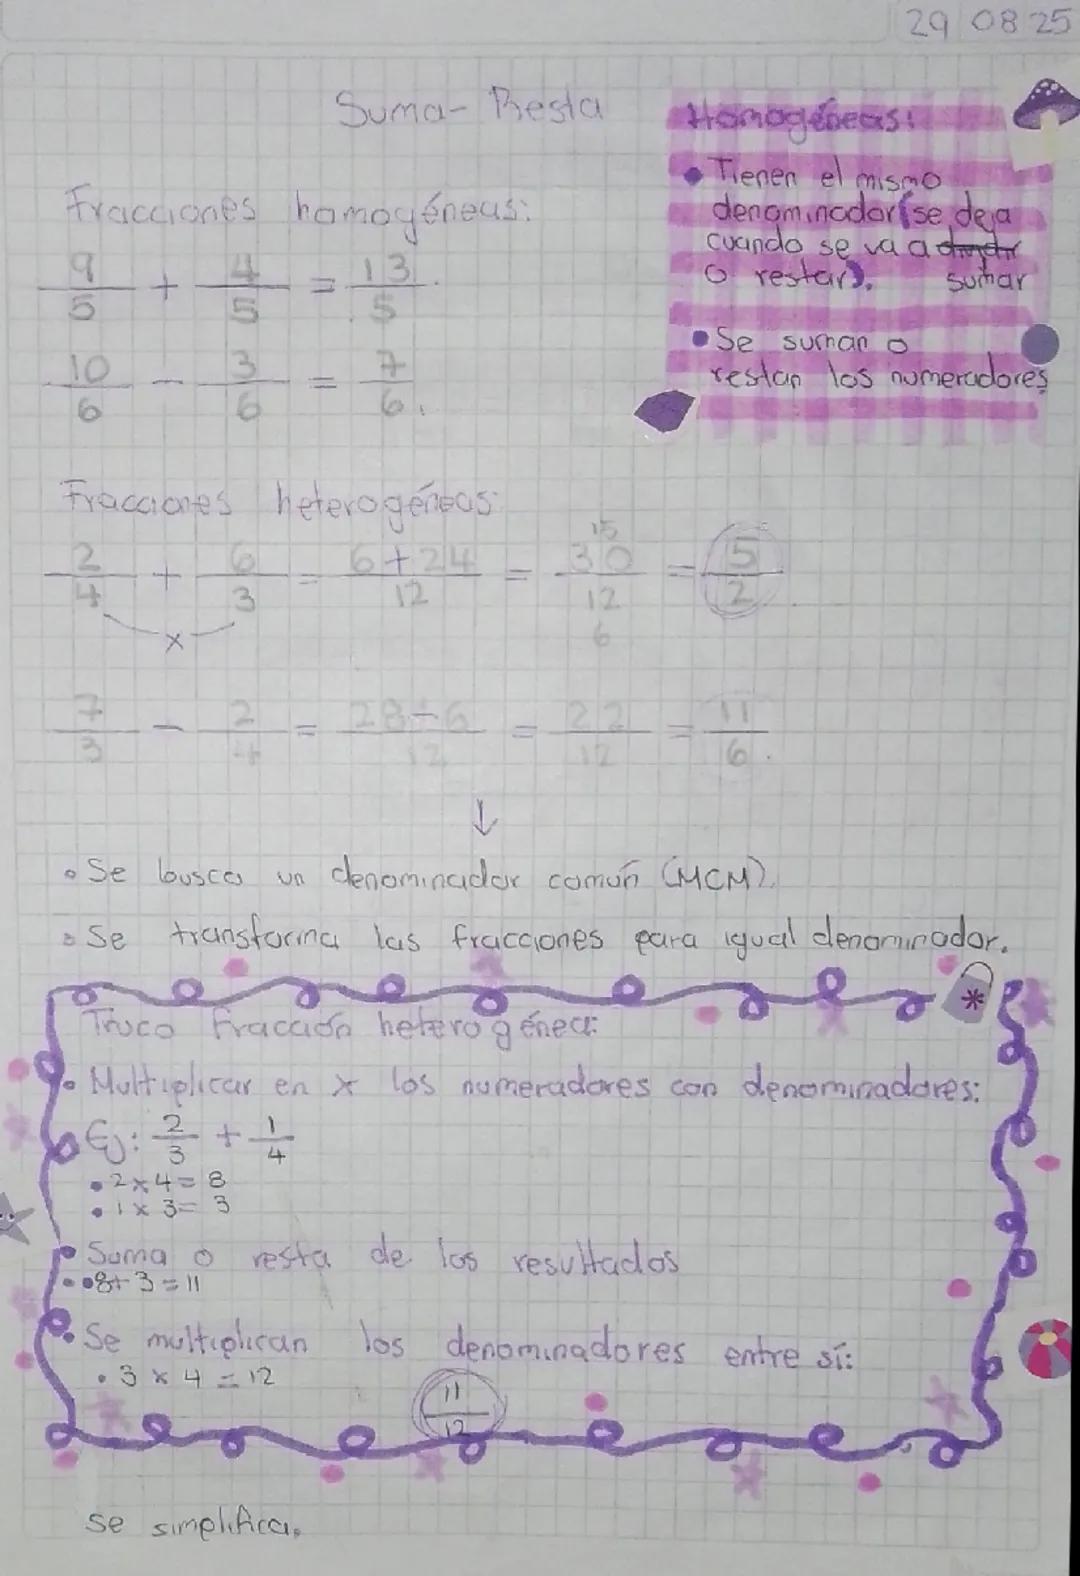 29 08 25
Suma- Resta
Homogéneas:
• Tienen el mismo
denominador (se deja
cuando se va a dividir
o restar). sumar
• Se suman o
restan los numeradores
Fracciones homogéneas:
9/5 + 4/5 = 13/5.
10/6 - 3/6 = 7/6.
Fracciones heterogéneas:
2/4 + 6/3 = 6+24/12 = 30/12 = 5/2
15
6
x
7/3 - 2/4 = 28-6/12 = 22/12 = 11/6.
↓
• Se busca un denominador común (MCM).
• Se transforma las fracciones para igual denominador.
Truco fracción heterogénea:
• Multiplicar en x los numeradores con denominadores:
Ej: 2/3 + 1/4
• 2x4= 8
• 1 x 3= 3
• Suma o resta de los resultados
• 8+3=11
• Se multiplican los denominadores entre sí:
• 3 x 4 = 12
11/12
se simplifica.